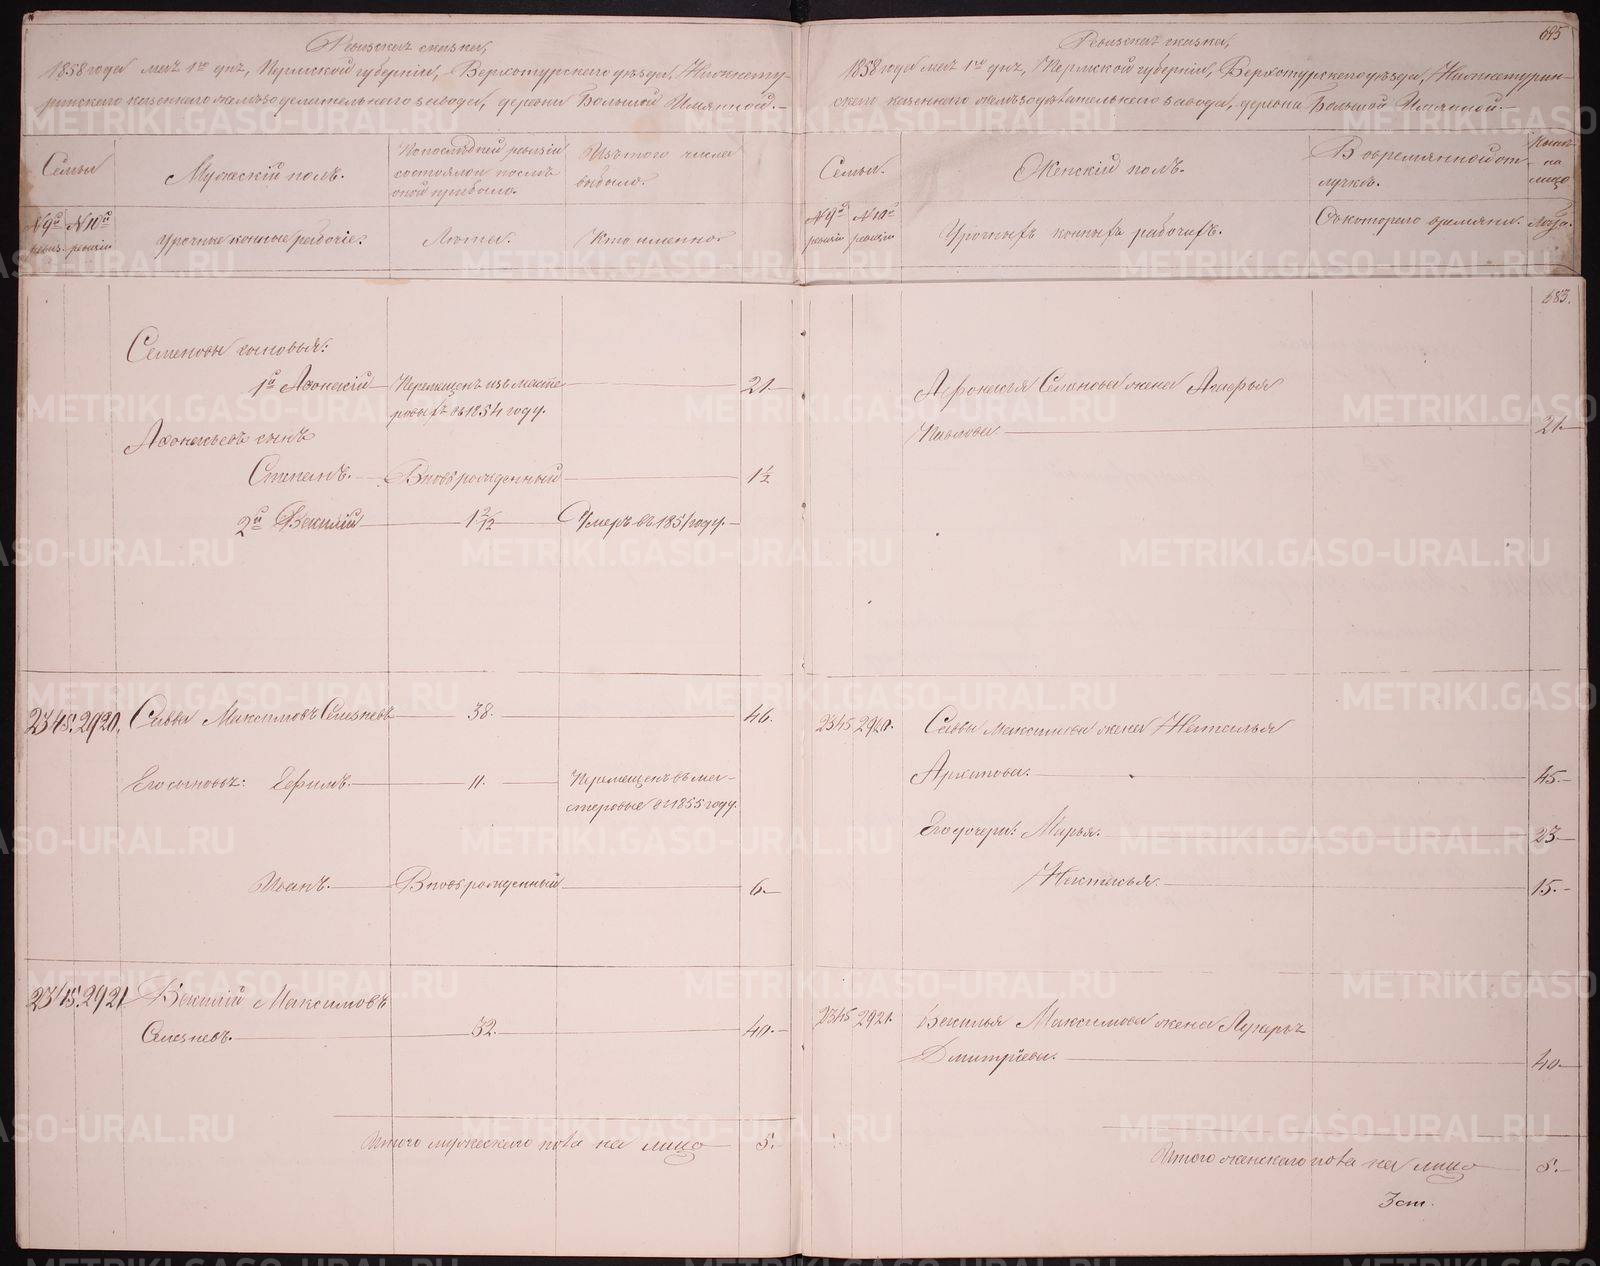 Ревизская сказка,
1858 года мая 1го дня, Пермской губерніи, Верхотурскаго уѣзда, Нижнету-
ринскаго казеннаго желѣзодѣлательнаго завода, деревни Большой Именной.
Семьи
Мужескій полъ.
По последней ревизіи состоялои после оной прибыло.
Изъ того числа выбыло.
№ 9й ревиз.
№ 10й ревизіи
Урочные конные рабочіе.
Лѣта.
Кто именно
Семеновы сыновья:
1й Афонасій
Перемещенъ изъ масте
ровыхъ въ 1854 году.
21
Афонасьевъ сынъ
Степанъ.
Вновьрожденный
1½
2й Василій
1 2/12
Умеръ въ 1851 году.
2345. 2920.
Савва Максимовъ Селезневъ
38.
46.
Его сыновья: Ефимъ.
11.
Перемещенъ въ ма-
стеровые въ 1855 году.
Иванъ.
Вновьрожденный
6.
2345. 2921
Василій Максимовъ
Селезневъ.
32.
40.
Итого мужескаго пола на лицо
5.
695
Ревизская сказка,
1858 года мая 1го дня, Пермской губерніи, Верхотурскаго уѣзда, Нижнетурин-
скаго казеннаго желѣзодѣлательнаго завода, деревни Большой Именной.
Семьи.
Женскій полъ.
В овремянной от
лучкѣ.
на
лицо
№ 9й ревизіи
№ 10й ревизіи
Урочныхъ конныхъ рабочихъ.
Съ котораго времяни.
Лѣта.
683.
Афонасья Семенова жена
Павлова
21.
2345 2920.
Саввы Максимова жена Наталья
Архипова.
45.
Его дочери: Марья.
23
Настасья.
15.
2345 2921.
Василья Максимова жена Лукерья
Дмитріева.
40
Итого женскаго пола на лицо
5.
3 ст.
METRIKI.GASO-URAL.RU